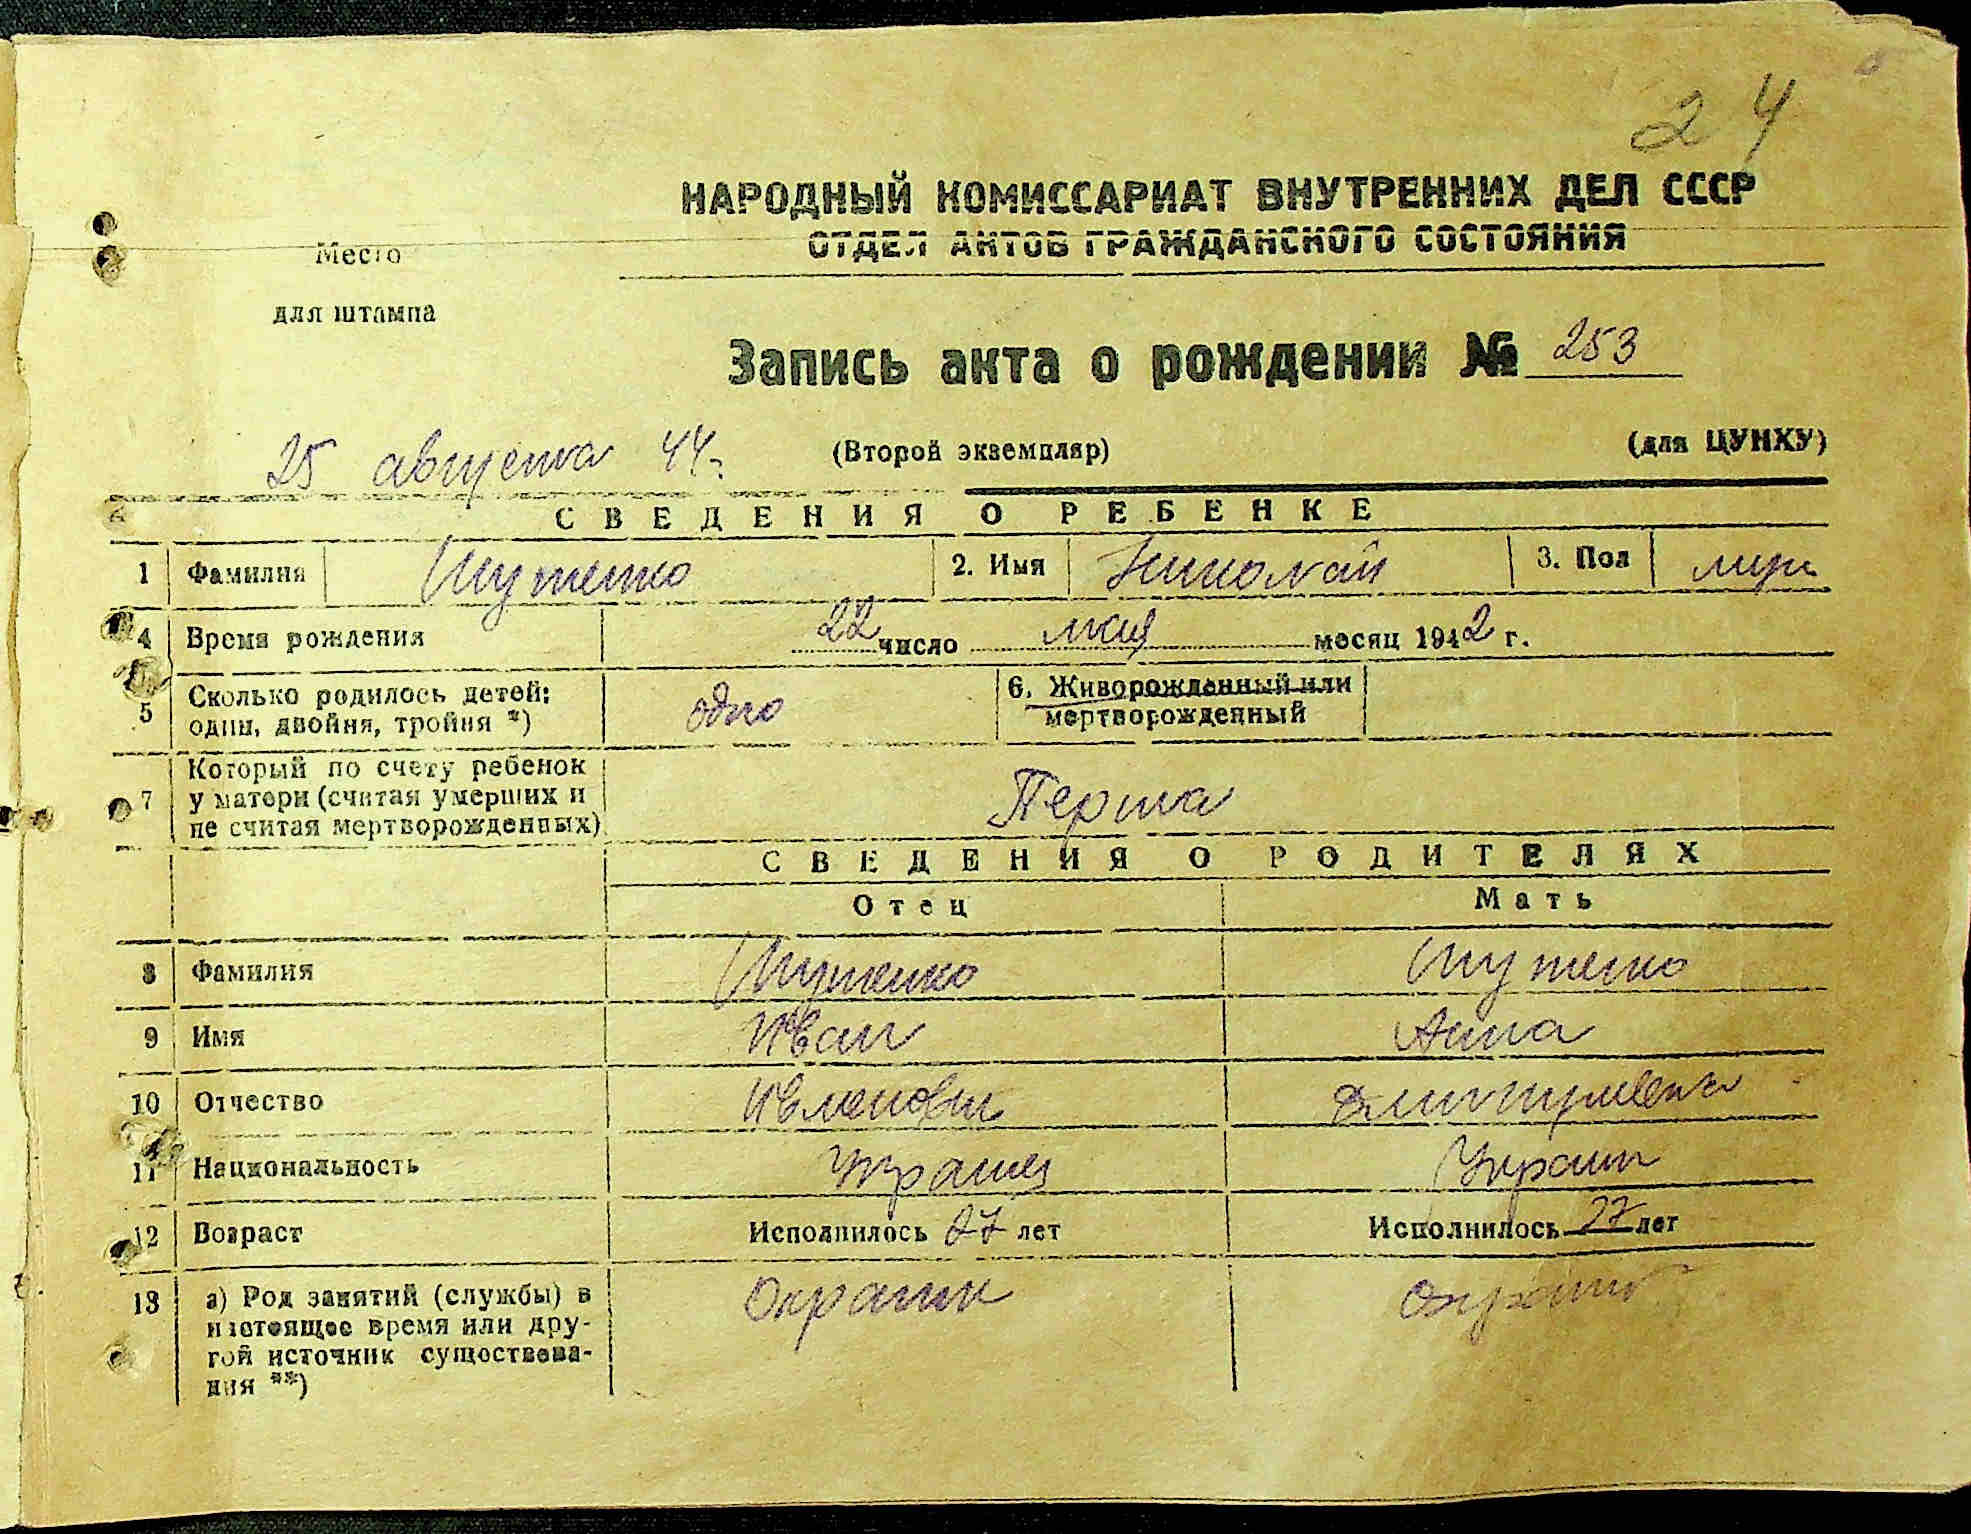 24
НАРОДНЫЙ КОМИССАРИАТ ВНУТРЕННИХ ДЕЛ СССР
ОТДЕЛ АКТОВ ГРАЖДАНСКОГО СОСТОЯНИЯ
Место
для штампа
Запись акта о рождении № 253
25 августа 44 г. (Второй экземпляр) (для ЦУНХУ)
СВЕДЕНИЯ О РЕБЕНКЕ
1 Фамилия Шутенко 2. Имя Николай 3. Пол муж
4 Время рождения 22 число мая месяц 1942 г.
5 Сколько родилось детей: один, двойня, тройня *) одно 6. Живорожденный или мертворожденный
7 Который по счету ребенок у матери (считая умерших и не считая мертворожденных)
СВЕДЕНИЯ О РОДИТЕЛЯХ
Отец Мать
8 Фамилия Шутенко Шутенко
9 Имя Иван Анна
10 Отчество
11 Национальность
12 Возраст Исполнилось 27 лет Исполнилось 27 лет
13 а) Род занятий (службы) в
настоящее время или дру-
гой источник существова-
ния **)